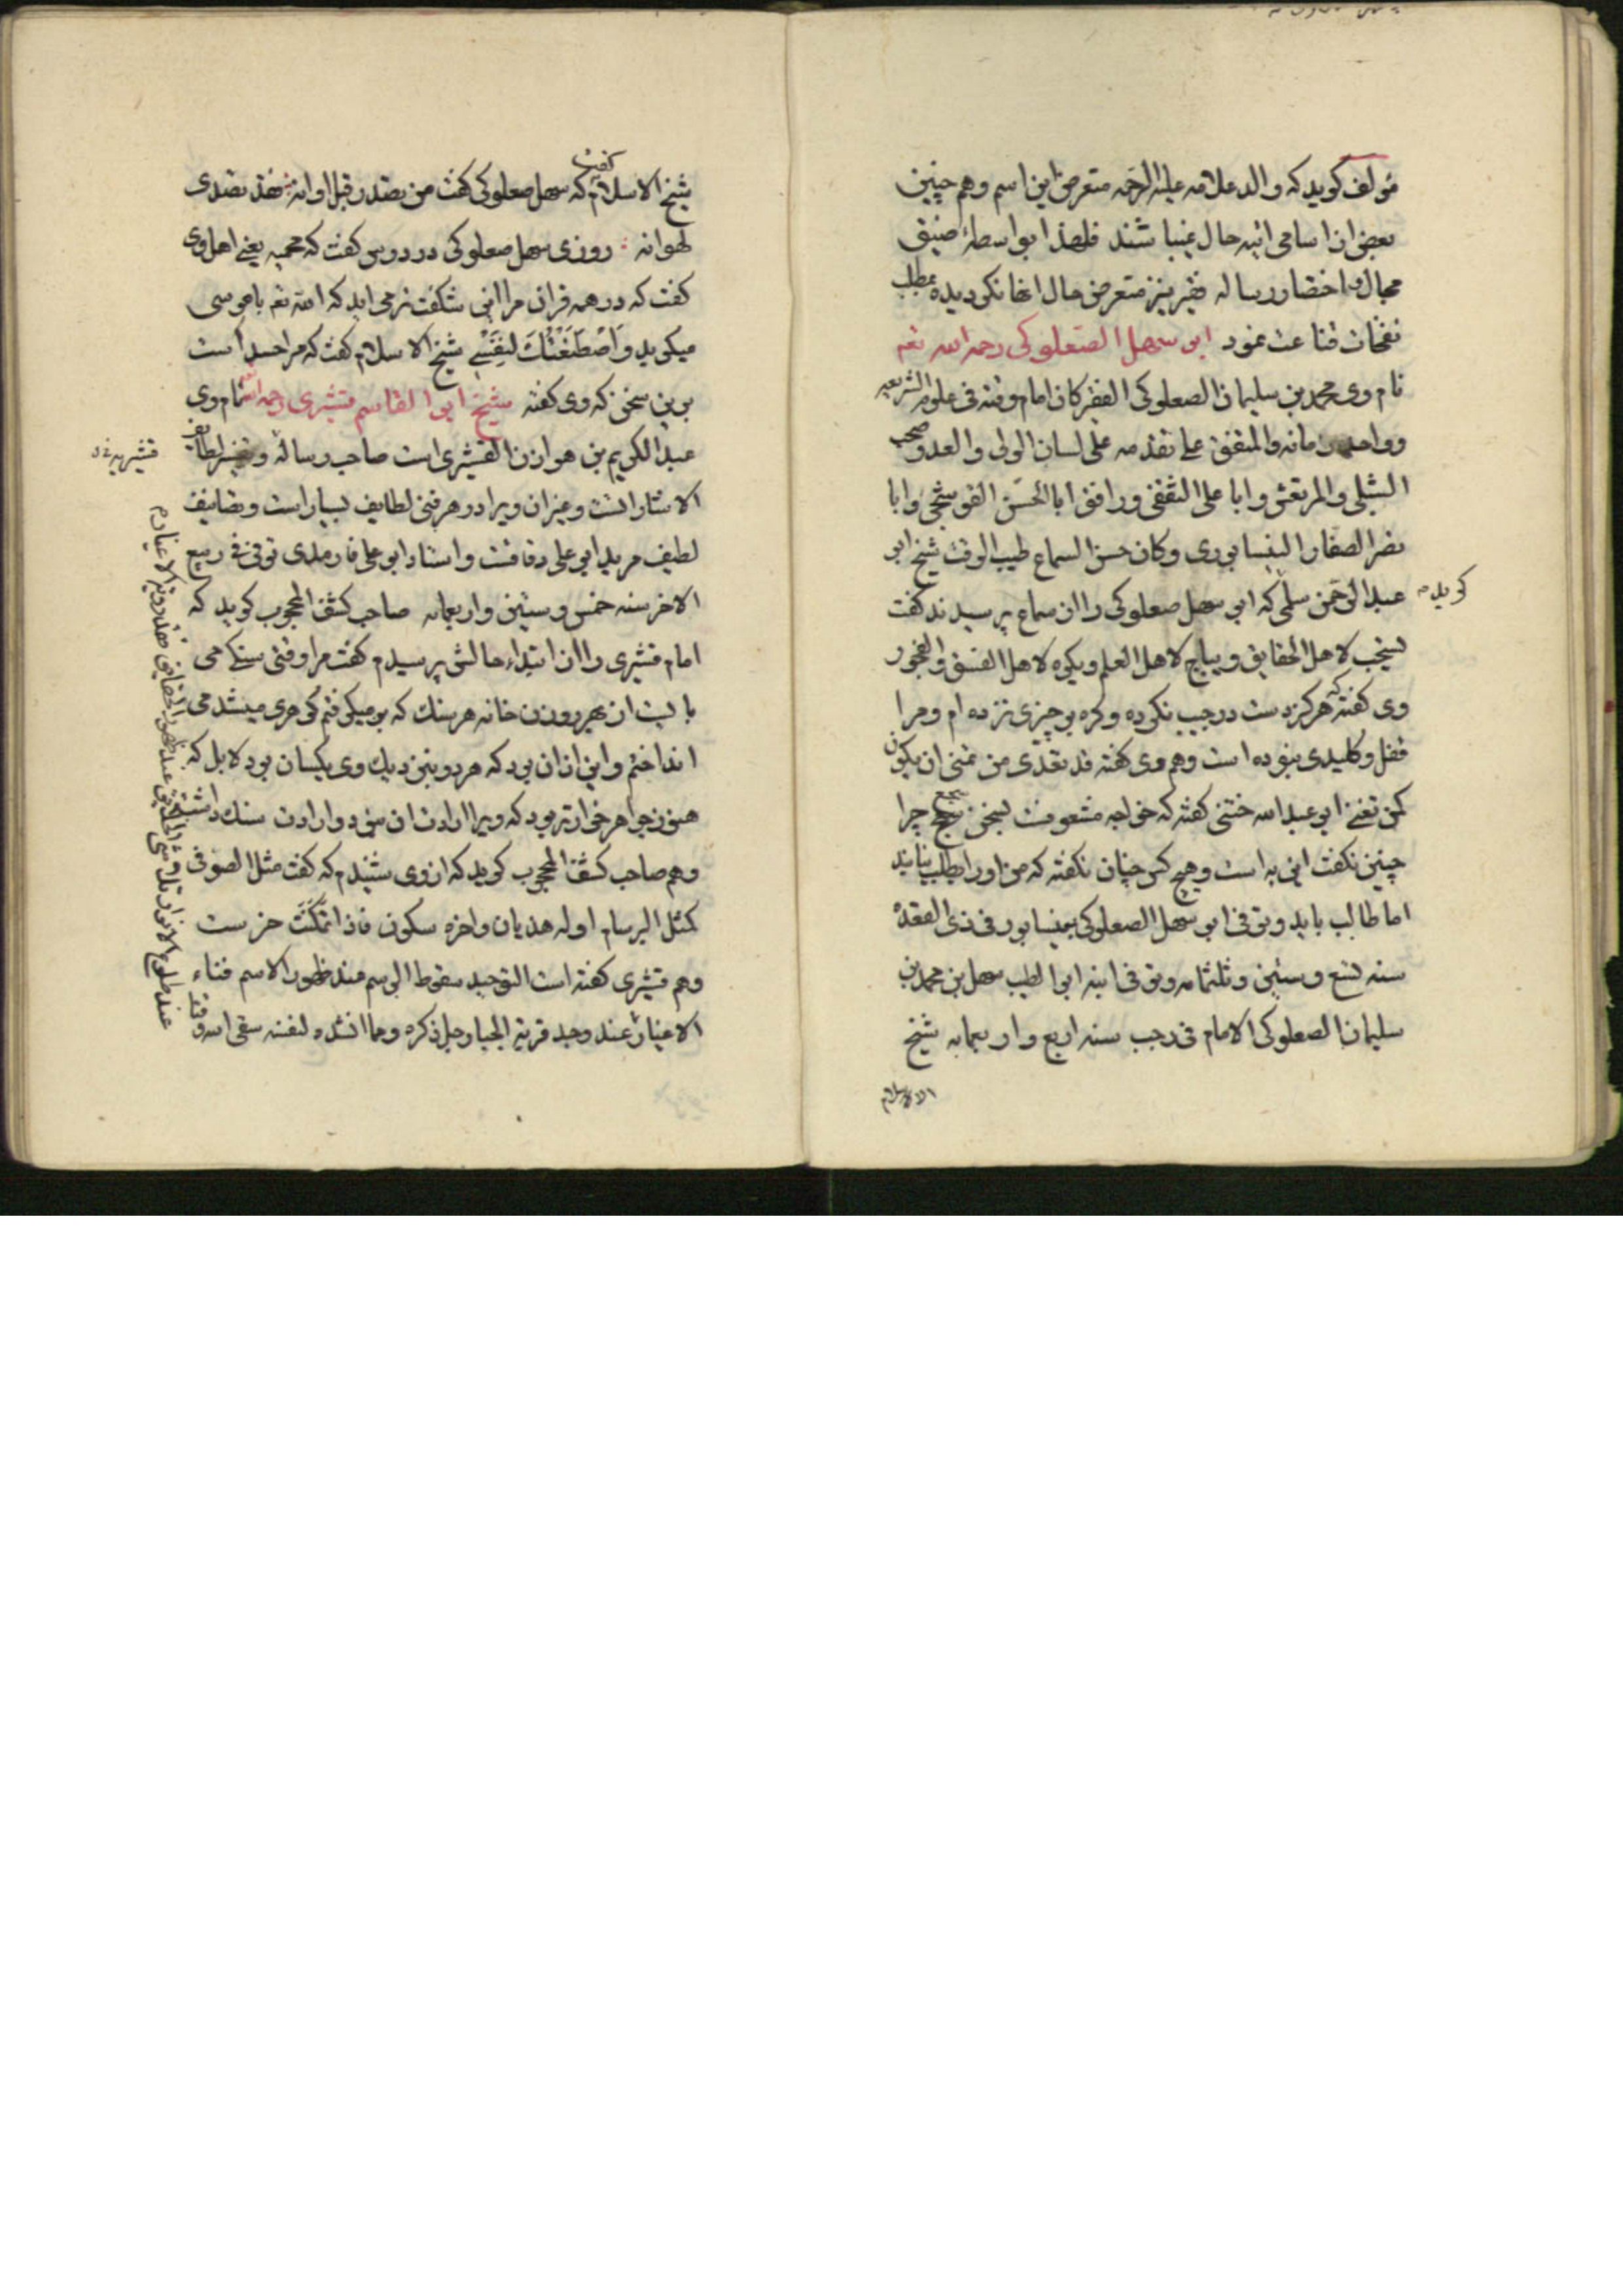 مؤلف کوید که والد علامه علیه الرحمه متعرض این اسم وهم چنین
بعض از اسامی اتیه حال نمیباشند فلهذا بواسطهٔ ضیق
مجال و اختصار رساله فقیر نیز متعرض حال انها نکردیده بمطلب
نفحات قناعت نمود ابو سهل الصعلوکی رحمه الله تعه
نام وی محمد بن سلیمان الصعلوکی الفقر کان امام وقته فی علوم الشریعه
وواحد زمانه والمتفق علی تقدمه علی لسان الولی والعدو صحب
الشبلی والمرتعش وابا علی الثقفی ورافق ابا الحسن القوشنجی وابا
نصر الصفار النیسابوری وکان حسن السماع طیب الوقت شیخ ابو
عبد الرحمن سلمی که ابو سهل صعلوکی را از سماع پرسیدند کفت
کوید
لیستحب لاهل الحقایق ویباح لاهل العلم ویکره لاهل الفسق والفجور
وی کفته که هرکز دست درجیب نکرده وکره بر چیزی نزده ام ومرا
قفل وکلیدی نبوده است وهم وی کفته قد تعدی من تمنی ان یکون
کمن تعنی ابو عبد الله ختنی کفته که خواجه
چنین نکفت این به است وهیچ کس چنان نکفته که من اورا بطلب نیابند
اما طالب باید وتوفی ابو سهل الصعلوکی بنیسابور فی ذی القعدة
سنه تسع وستین وثلثمامه وتوفی ابنه ابو الطیب سهل بن محمد بن
سلیمان الصعلوکی الامام فی رجب سنه اربع واربعمایه شیخ
الاسلام
شیخ الاسلام کفت که سهل صعلوکی کفت من تصدر قبل اوانه فقد تصدی
لهوانه روزی سهل صعلوکی در دروس کفت که محمیه یعنی اهل وی
کفت که در همه قران مرا این شکفت تر می اید که الله تعه با موسی
میکوید وَاصْطَنَعْتُكَ لِنَفْسِي شیخ الاسلام کفت که مرا حسد است
برین سخن که وی کفته شیخ ابو القاسم قشیری رحمه الله نام وی
عبد الکریم بن هوازن القشیری است صاحب رساله وتفسیر لطایف
قشیریه
الاشارات است وغیر ان ویرا در هر فنی لطایف بسیار است وتصانیف
لطیف مرید ابو علی دقاقست واستاد ابو علی فارمدی توفی فی ربیع
الاخر سنه خمس وستین واربعمایه صاحب کشف المحجوب کوید که
امام قشیری را از ابتداء حالش پرسیدم کفت مرا وقتی سنکی می
بایست از بهر روزن خانه هر سنک که بر میکرفتم کوهری میشد می
انداختم واین از ان بود که هر دو بنزدیک وی یکسان بود لابل که
هنوز جواهر خوارتر بود که ویرا ارادت ان نبود وارادت سنک داشت
وهم صاحب کشف المحجوب کوید که از وی شنیدم که کفت مثل الصوفی
کمثل البرسام اوله هذیان واخره سکون فاذا تمکنت خرست
وهم قشیری کفته است التوحید سقوط الرسم عند ظهور الاسم فناء
الاغیار عند وجد قربة الجبار جل ذکره ومما انشده لنفسه سقی الله وقتا
عند طلوع الانوار